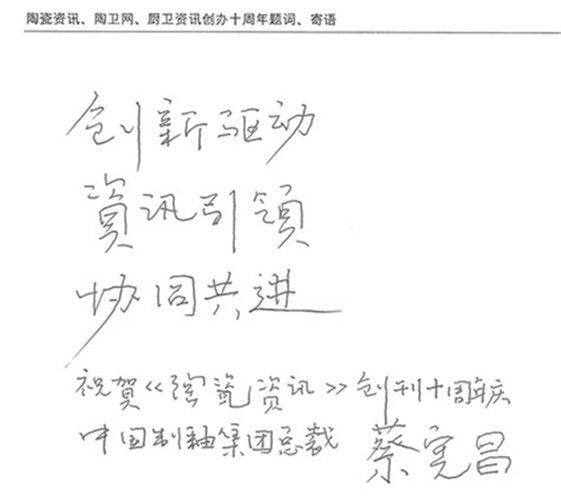 陶瓷资讯、陶卫网、厨卫资讯创办十周年题词、寄语
创新驱动
資讯引领
协同共进
祝賀《陶瓷资讯》创刊十周年庆
中国制釉集团总裁 蔡宪昌